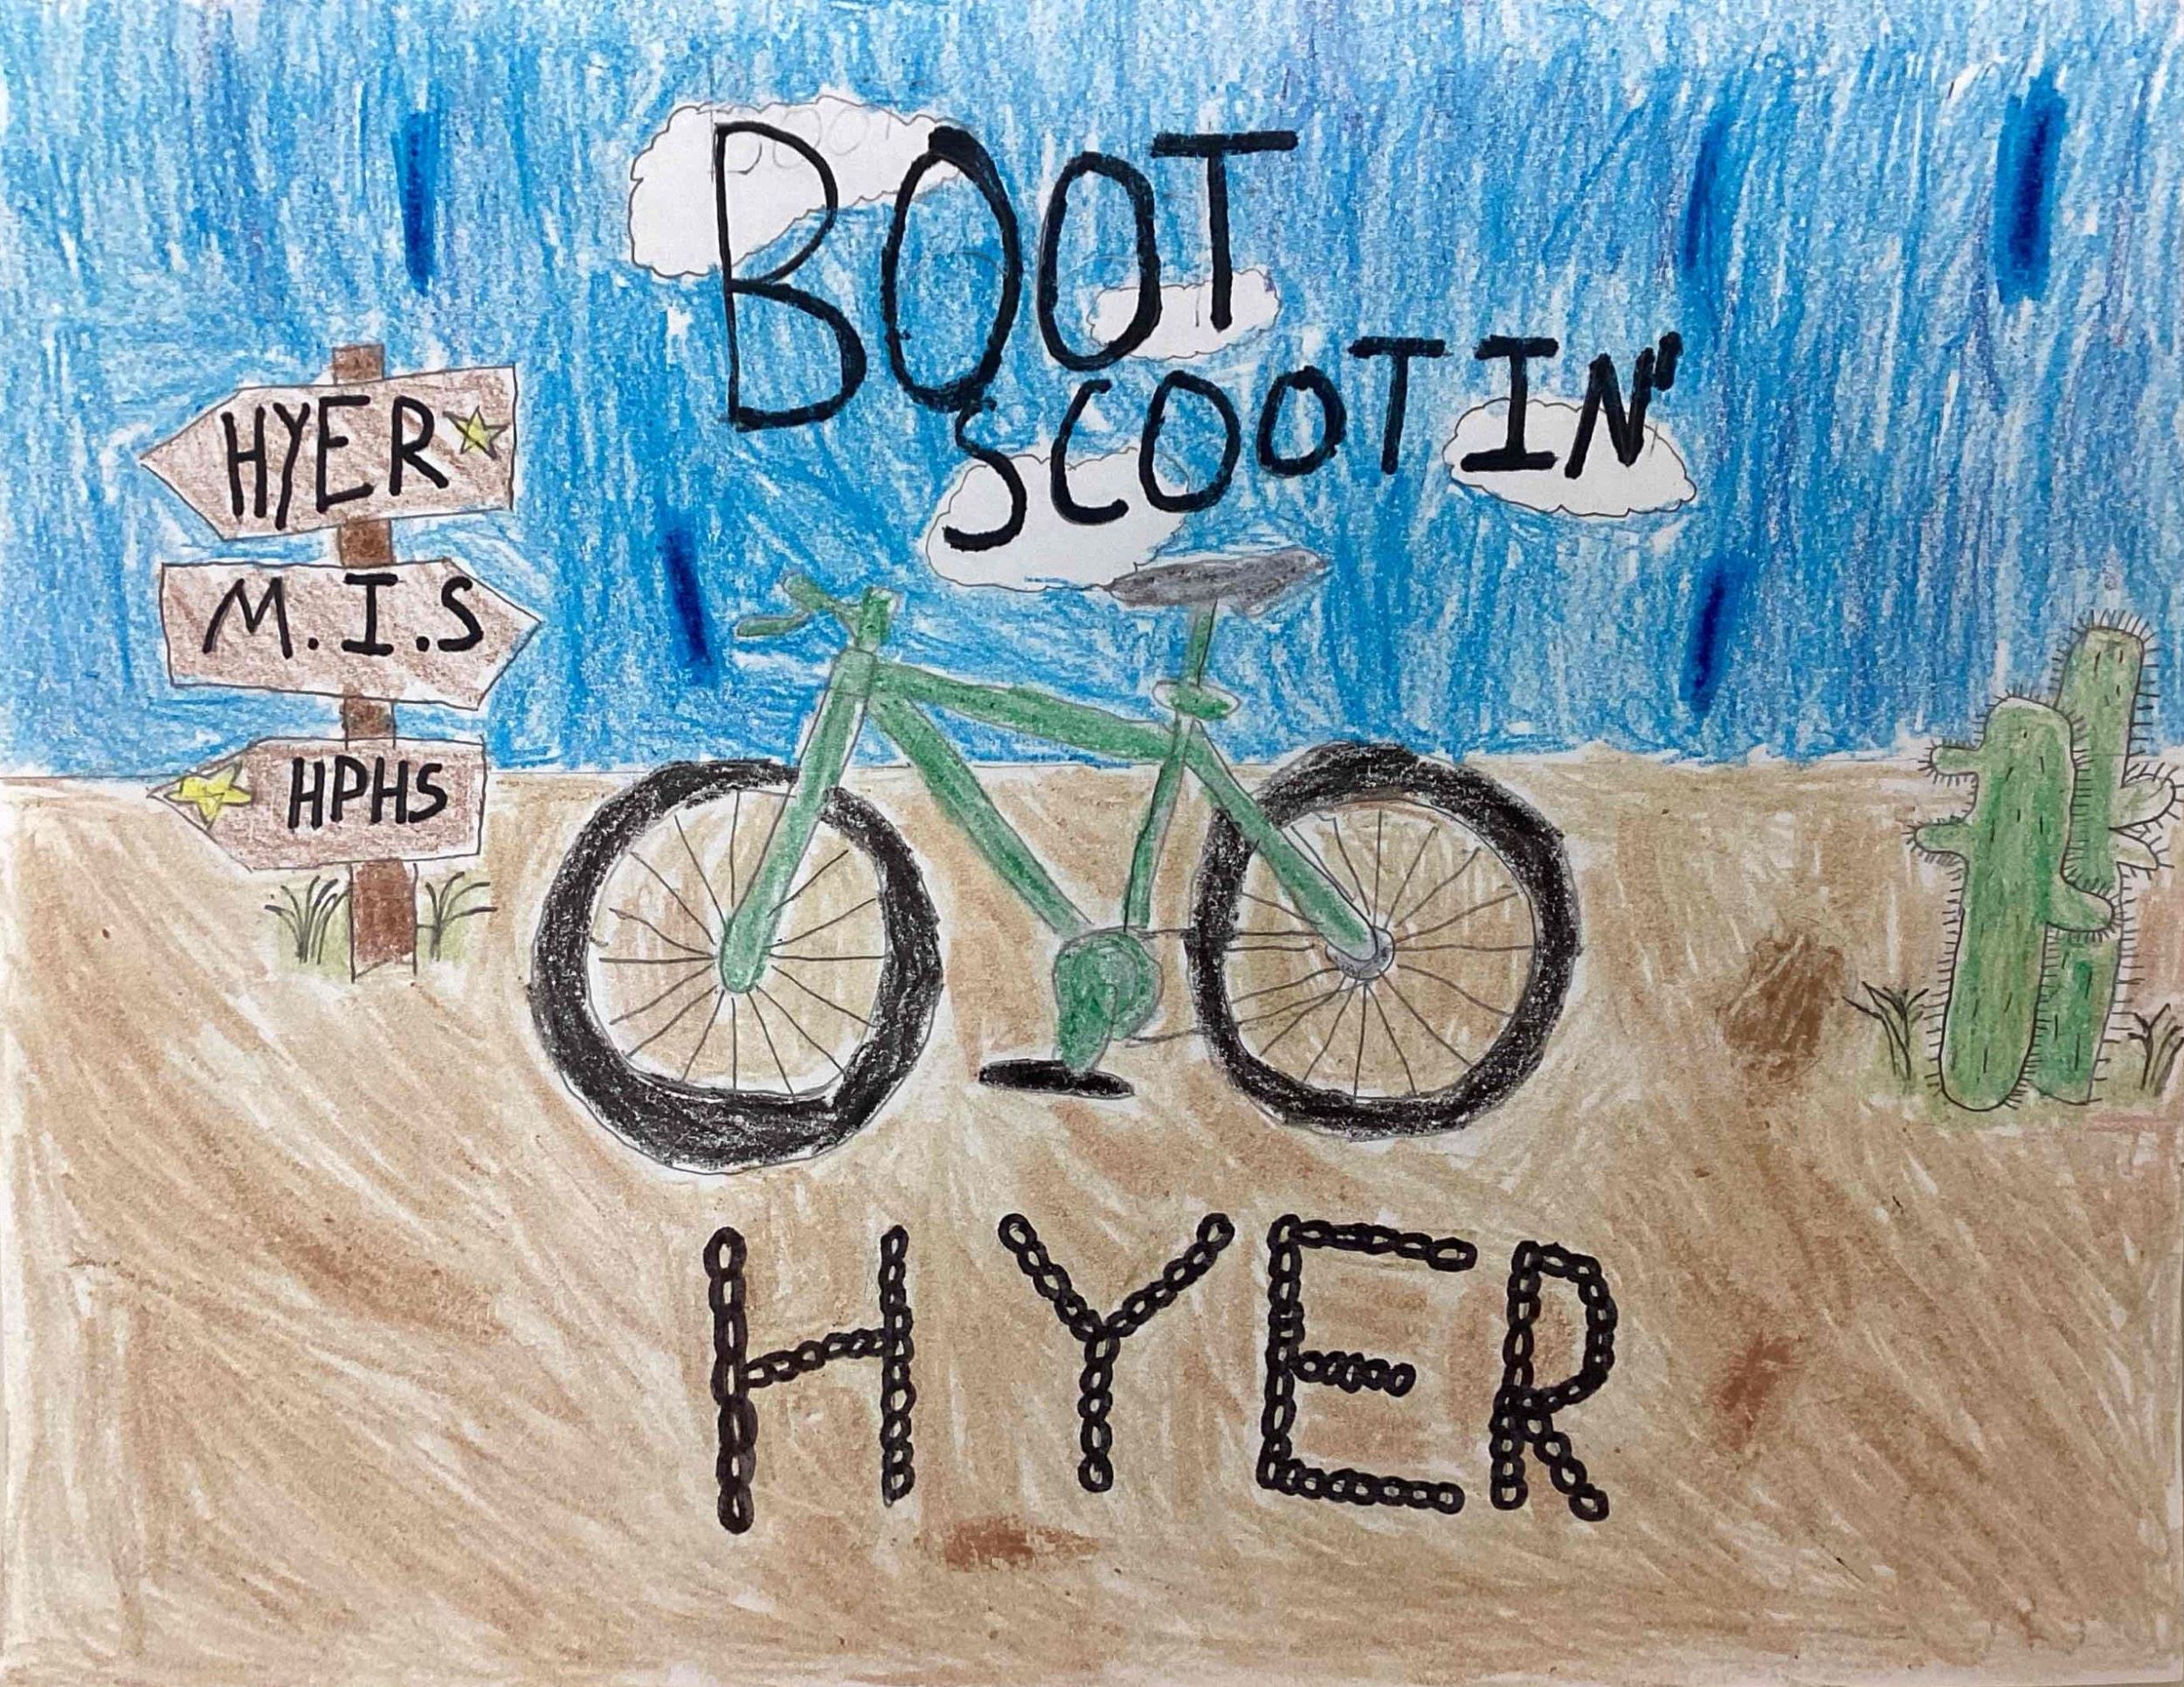 BOOT
SCOOTIN'
HYER
M.I.S
HPHS
HYER